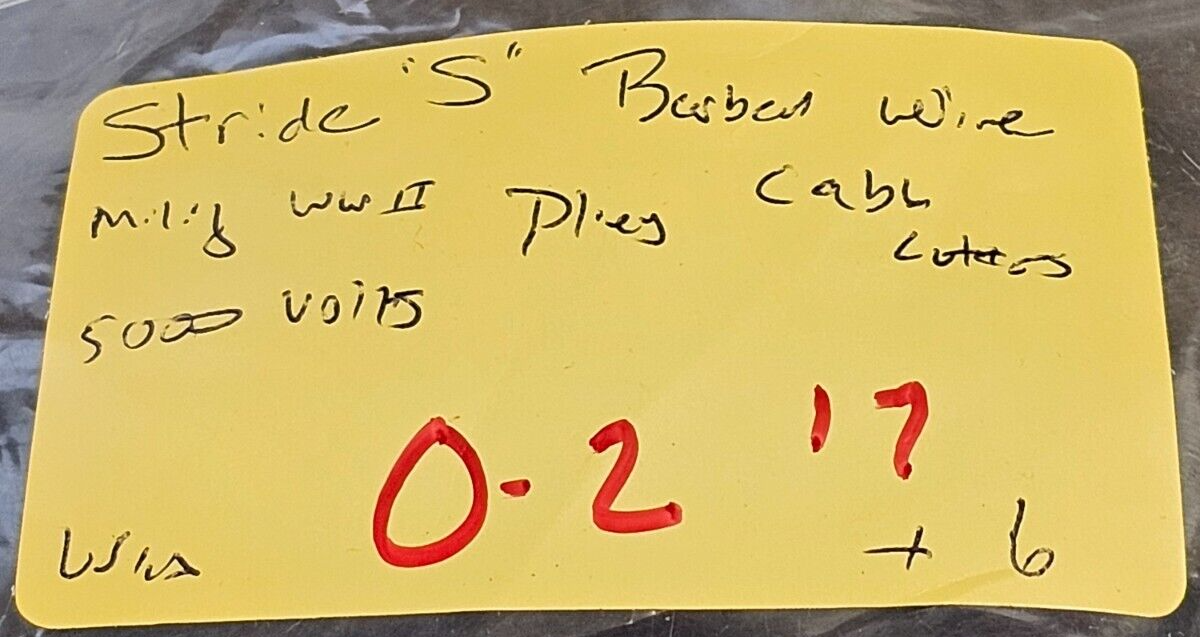 Stride "S" Barbed Wire
WWII Pliers Cable
Cutters
5000 Volts
0-2 17
+ 6